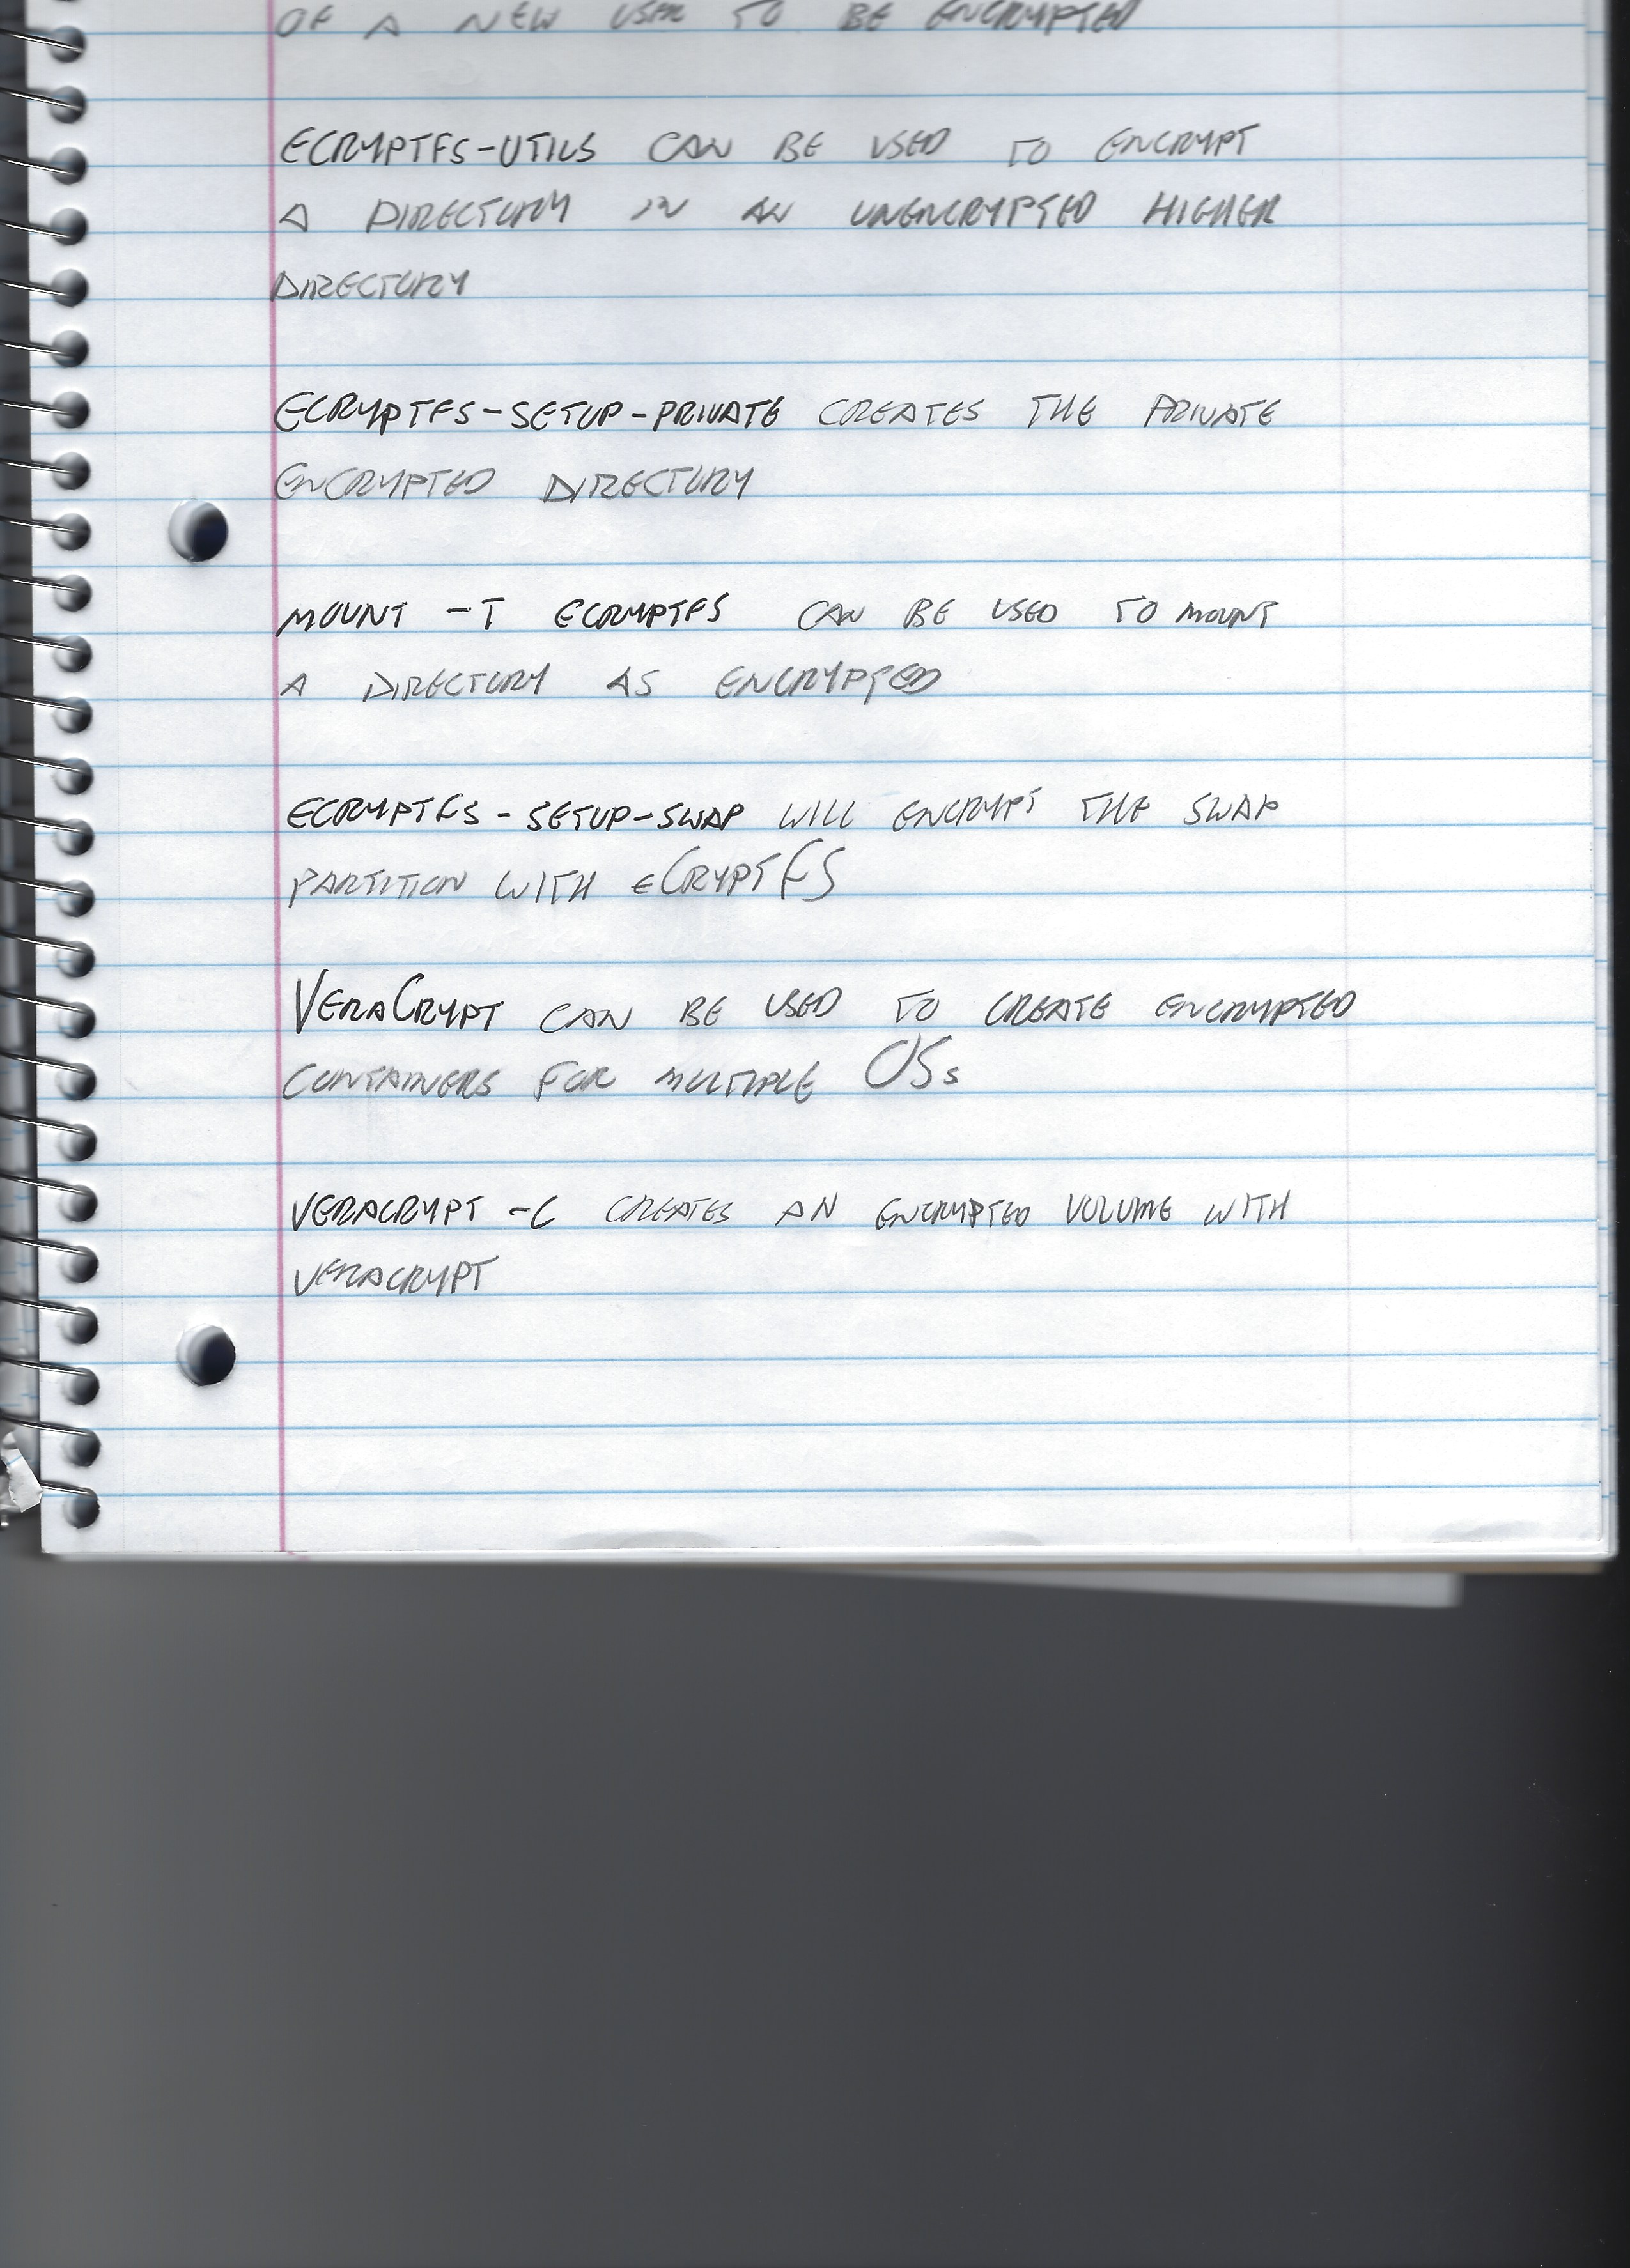 OF A NEW USER TO BE ENCRYPTED
ECRYPTFS-UTILS CAN BE USED TO ENCRYPT
A DIRECTORY IN AN UNENCRYPTED HIGHER
DIRECTORY
ECRYPTFS-SETUP-PRIVATE CREATES THE PRIVATE
ENCRYPTED DIRECTORY
MOUNT -T ECRYPTFS CAN BE USED TO MOUNT
A DIRECTORY AS ENCRYPTED
ECRYPTFS-SETUP-SWAP WILL ENCRYPT THE SWAP
PARTITION WITH eCRYPTFS
VERACRYPT CAN BE USED TO CREATE ENCRYPTED
CONTAINERS FOR MULTIPLE OSs
VERACRYPT -C CREATES AN ENCRYPTED VOLUME WITH
VERACRYPT